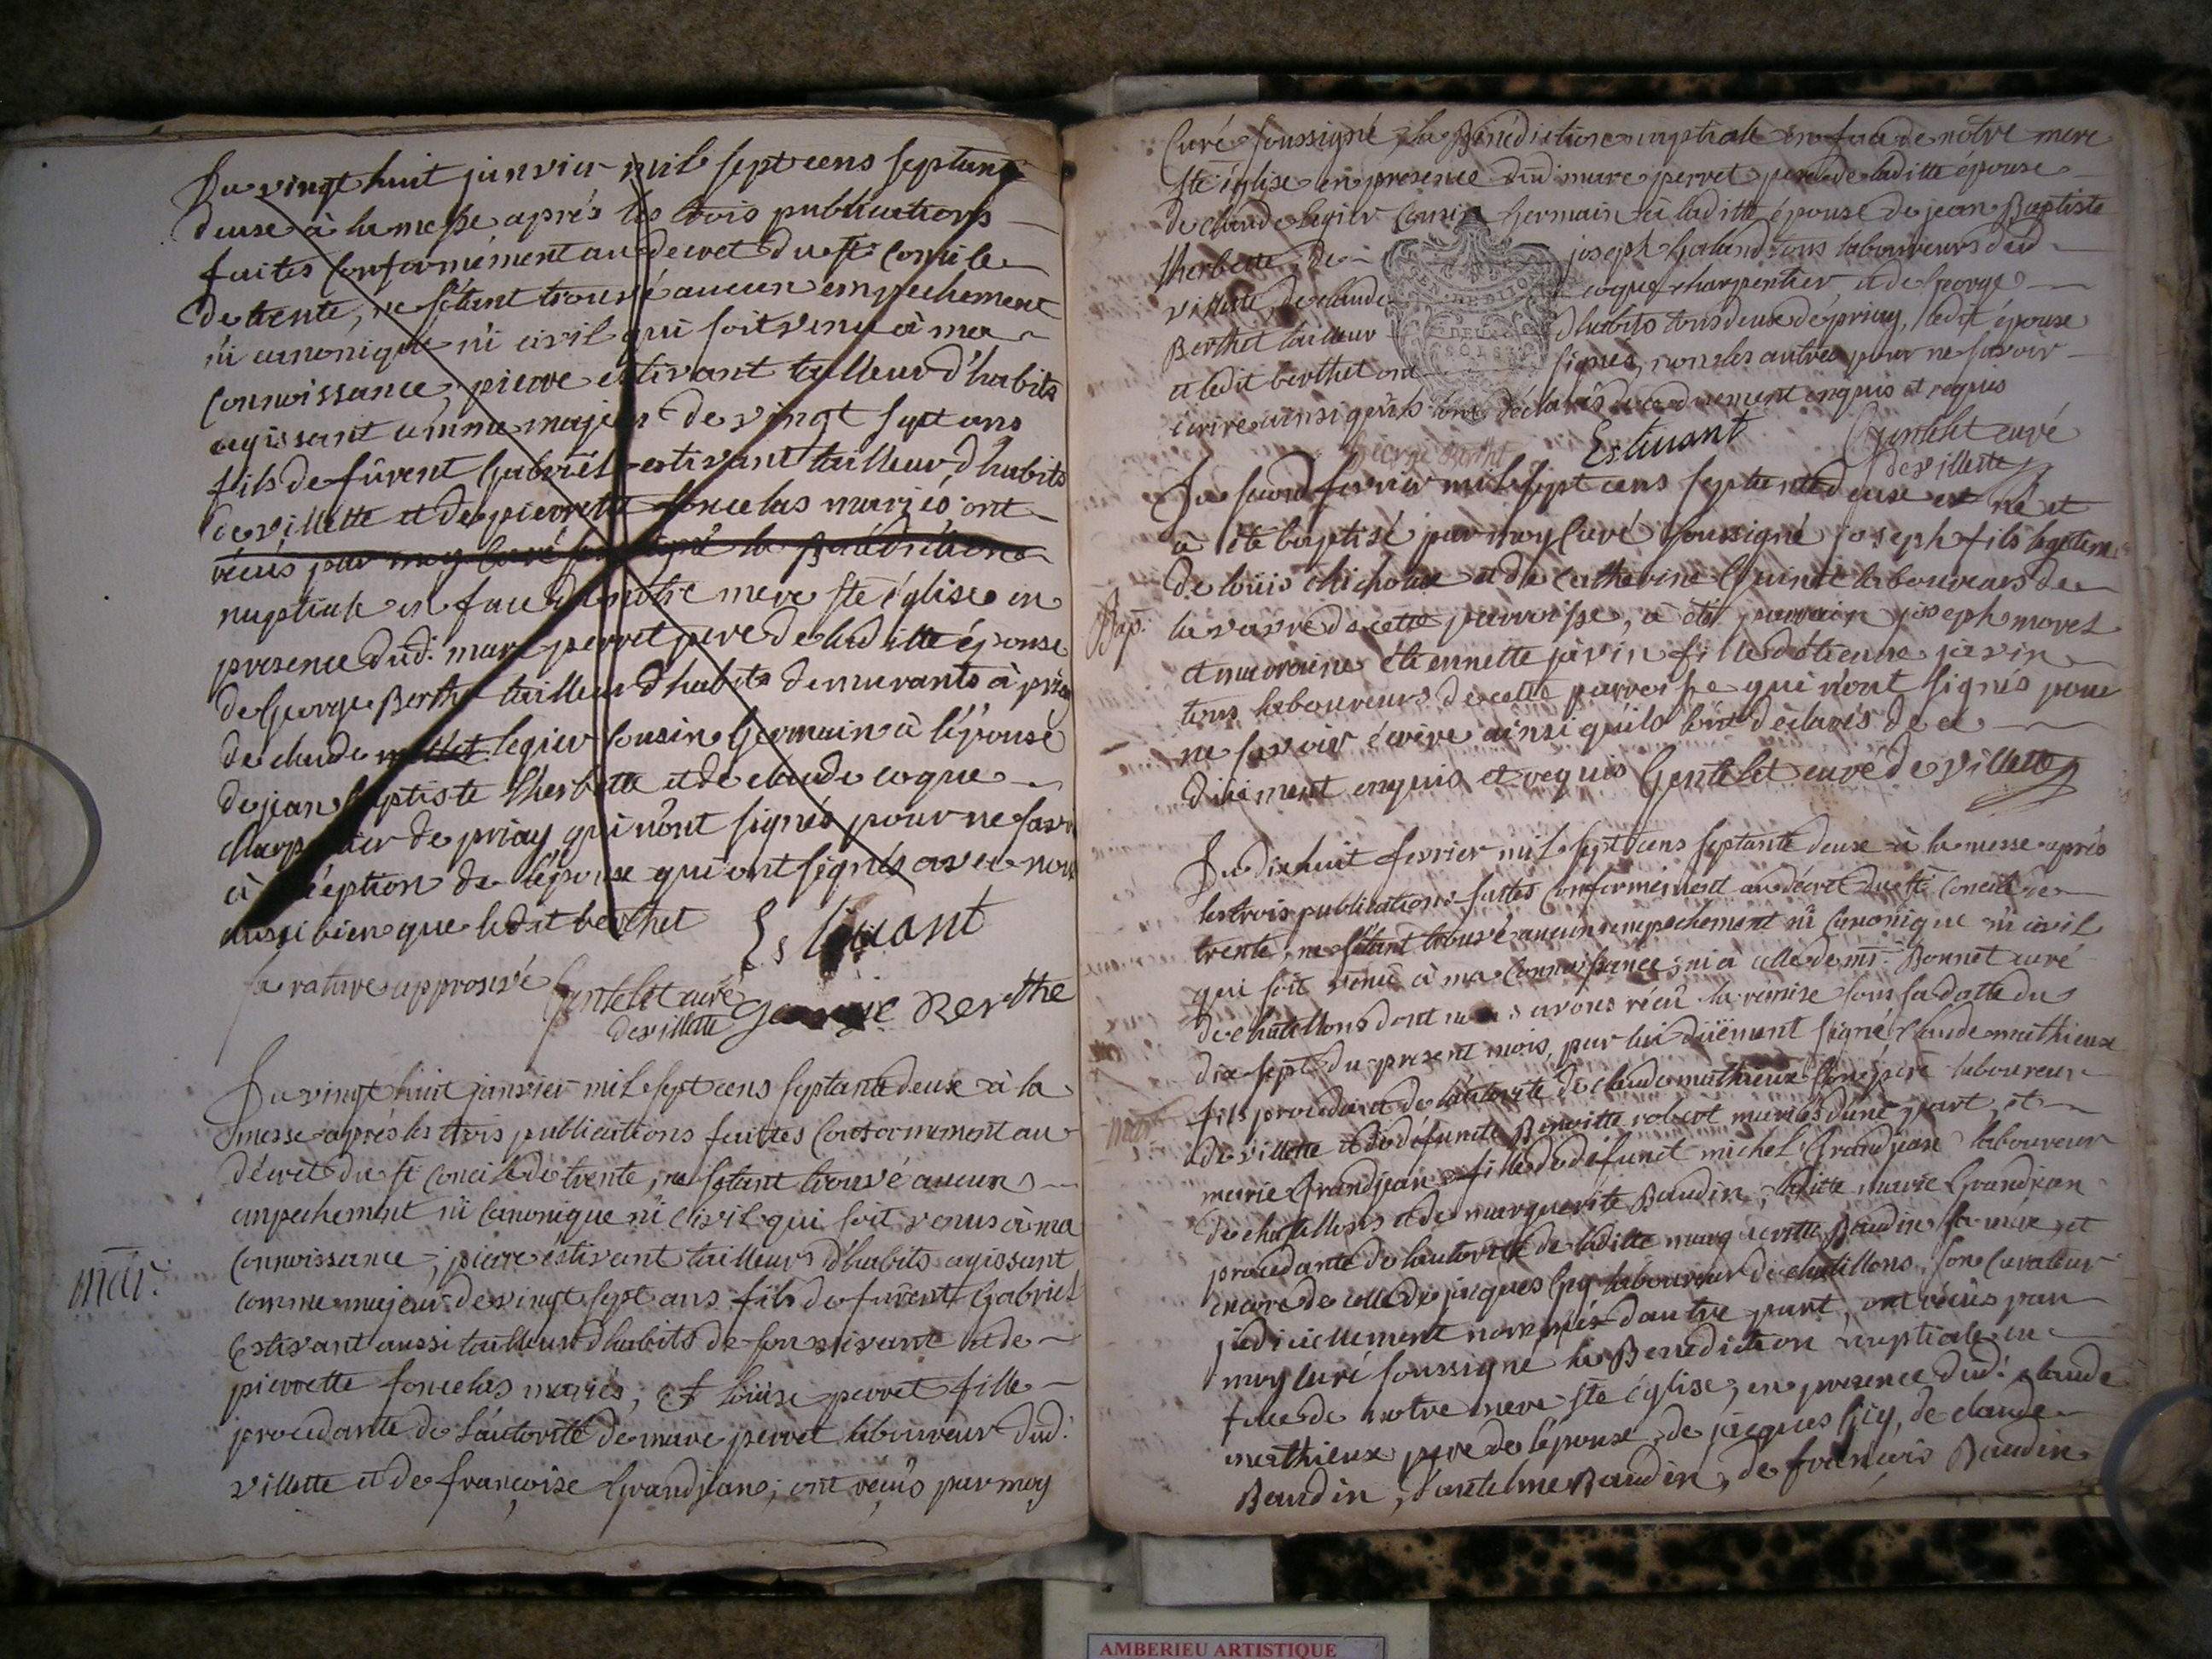 Du vingt huit janvier mil sept cens septante
deuse à la messe aprés les trois publications
faites conformément au decret du st concile
de trente, ne s'étant trouvé aucun empechement
ni canonique ni civil qui soit venu à ma
connoissance, pierre estivant tailleur d'habits
agissant comme majeur de vingt sept ans
fils de fûrent Gabriël estivant tailleur d'habits
de villette et de pierrette foncelas mariés ont
récus par moy Curé soussigné la Bénédiction
nuptiale en face de nôtre mere ste église en
presence dud. marc perret pere de laditte épouse
de George Berthet tailleur d'habits demurants à priay
de claude millet legier cousin Germain à l'épouse
de jean Baptiste therbette et de claude coque
charpentier de priay, qui n'ont signés pour ne savoir
à l'éception de l'épouse qui ont signés avec nous
aussi bien que ledit berthet Estivant
la rature approuvé Gentelet curé
de villette George Berthe
Du vingt huit janvier mil sept cens septante deuse à la
messe aprés les trois publications faittes conformement au
décret du st Concile de trente, ne s'étant trouvé aucun
empechement ni canonique ni civil qui soit venus à ma
connoissance; pierre estivant tailleur d'habits agissant
comme majeur de vingt sept ans fils de fûrent Gabriel
Estivant aussi tailleur d'habits de son vivant et de
mar.
pierrette foncelas mariés; Et loüise perret fille
procedante de l'autorité de marc perret laboureur dud.
villette et de françoise Grandjean; ont récûs par moy
Curé soussigné la Bénédiction nuptiale en face de nôtre mere
ste église en presence dud marc perret pere de laditte épouse
de claude legier Cousin Germain à laditte épouse de jean Baptiste
therbette, de joseph Galand tous laboureurs dud
villette, de claude coque charpentier, et de George
Berthet tailleur d'habits tous deux de priay, ledit épouse
et ledit berthet ont signés, non les autres pour ne savoir
écrire ainsi qu'ils l'ont déclarés de ce duement enquis et requis
George Berthet Estivant Gentelet curé
de villette
Du second fevrier mil sept cens septante deuse est né et
à été baptisé par moy Curé soussigné joseph fils legitime
de loüis chichoux et de Catherine Guinet laboureurs de
Bap.
la vavre de cette parroisse, à été parrain joseph morel
et marraine étiennette javin fille d'étienne javin
tous laboureurs de cette parroisse qui n'ont signés pour
ne savoir écrire ainsi qu'ils l'ont déclarés de ce
düement enquis et requis Gentelet curé de villette
Du dixhuit fevrier mil sept cens septante deuse à la messe aprés
les trois publications faittes conformément au décret du st Concile de
trente, ne s'étant trouvé aucun empechement ni Canonique ni civil
qui soit venû à ma connoissance, ni à celle de mr. Bonnet curé
de chatillons dont nous avons récû la remise sous sa datte du
dix sept du present mois, par lui düement signé, claude mathieux
fils procedant de l'autorité de claude mathieux son pere laboureur
mar.
de villette et de défuncte Benoitte robert mariés d'une part, et
marie Grandjean fille de défunct michel Grandjean laboureur
de chatillons et de marguerite Baudin, laditte marie Grandjean
procedante de l'autorité de laditte marguerite Baudin sa mere, et
encore de celle de jacques Guy laboureur de chatillons, son curateur
judiciellement nommés d'autre part, ont récûs par
moy Curé soussigné la Benediction nuptiale en
face de notre mere ste église, en presence dud. claude
mathieux pere de l'épouse, de jacques Guy, de claude
Baudin, d'antelme Baudin, de françois Baudin
AMBERIEU ARTISTIQUE